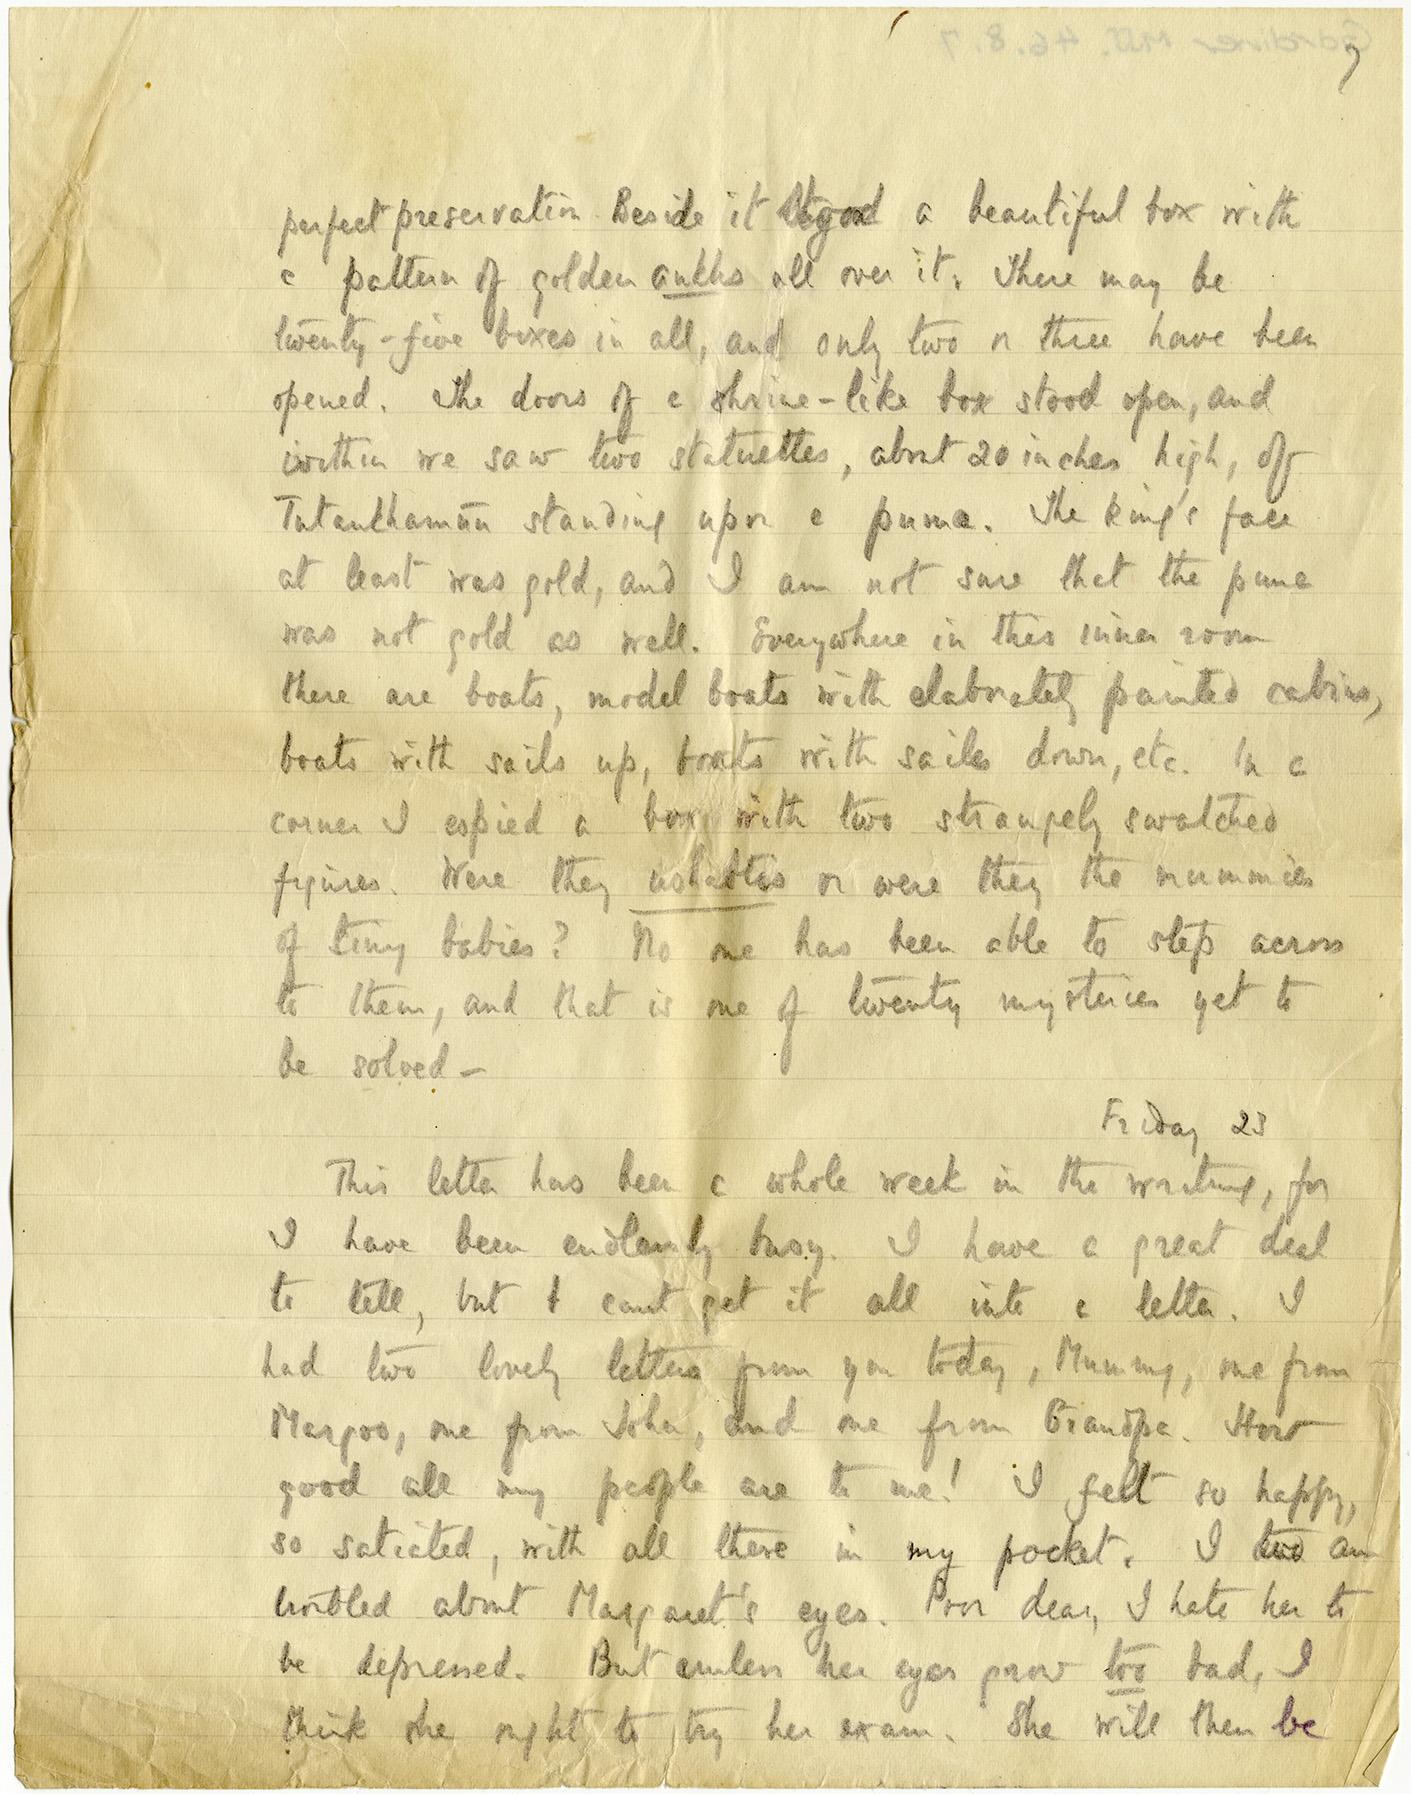 7
perfect preservation. Beside it stood a beautiful box with
a pattern of golden ankhs all over it. There may be
twenty-five boxes in all, and only two or three have been
opened. The doors of a shrine-like box stood open, and
within we saw two statuettes, about 20 inches high, of
Tutankhamūn standing upon a puma. The king's face
at least was gold, and I am not sure that the puma
was not gold as well. Everywhere in this inner room
there are boats, model boats with elaborately painted cabins,
boats with sails up, boats with sails down, etc. In a
corner I espied a box with two strangely swatched
figures. Were they ushabtis or were they the mummies
of tiny babies? No one has been able to step across
to them, and that is one of twenty mysteries yet to
be solved —
Friday 23
This letter has been a whole week in the writing, for
I have been endlessly busy. I have a great deal
to tell, but I cant get it all into a letter. I
had two lovely letters from you today, Mummy, one from
Margoo, one from John, and one from Grandpa. How
good all my people are to me! I felt so happy,
so satiated, with all these in my pocket. I too am
troubled about Margaret's eyes. Poor dear, I hate her to
be depressed. But unless her eyes grow too bad, I
think she right to try her exam. She will then be
Gardiner MSS. 46.8.7